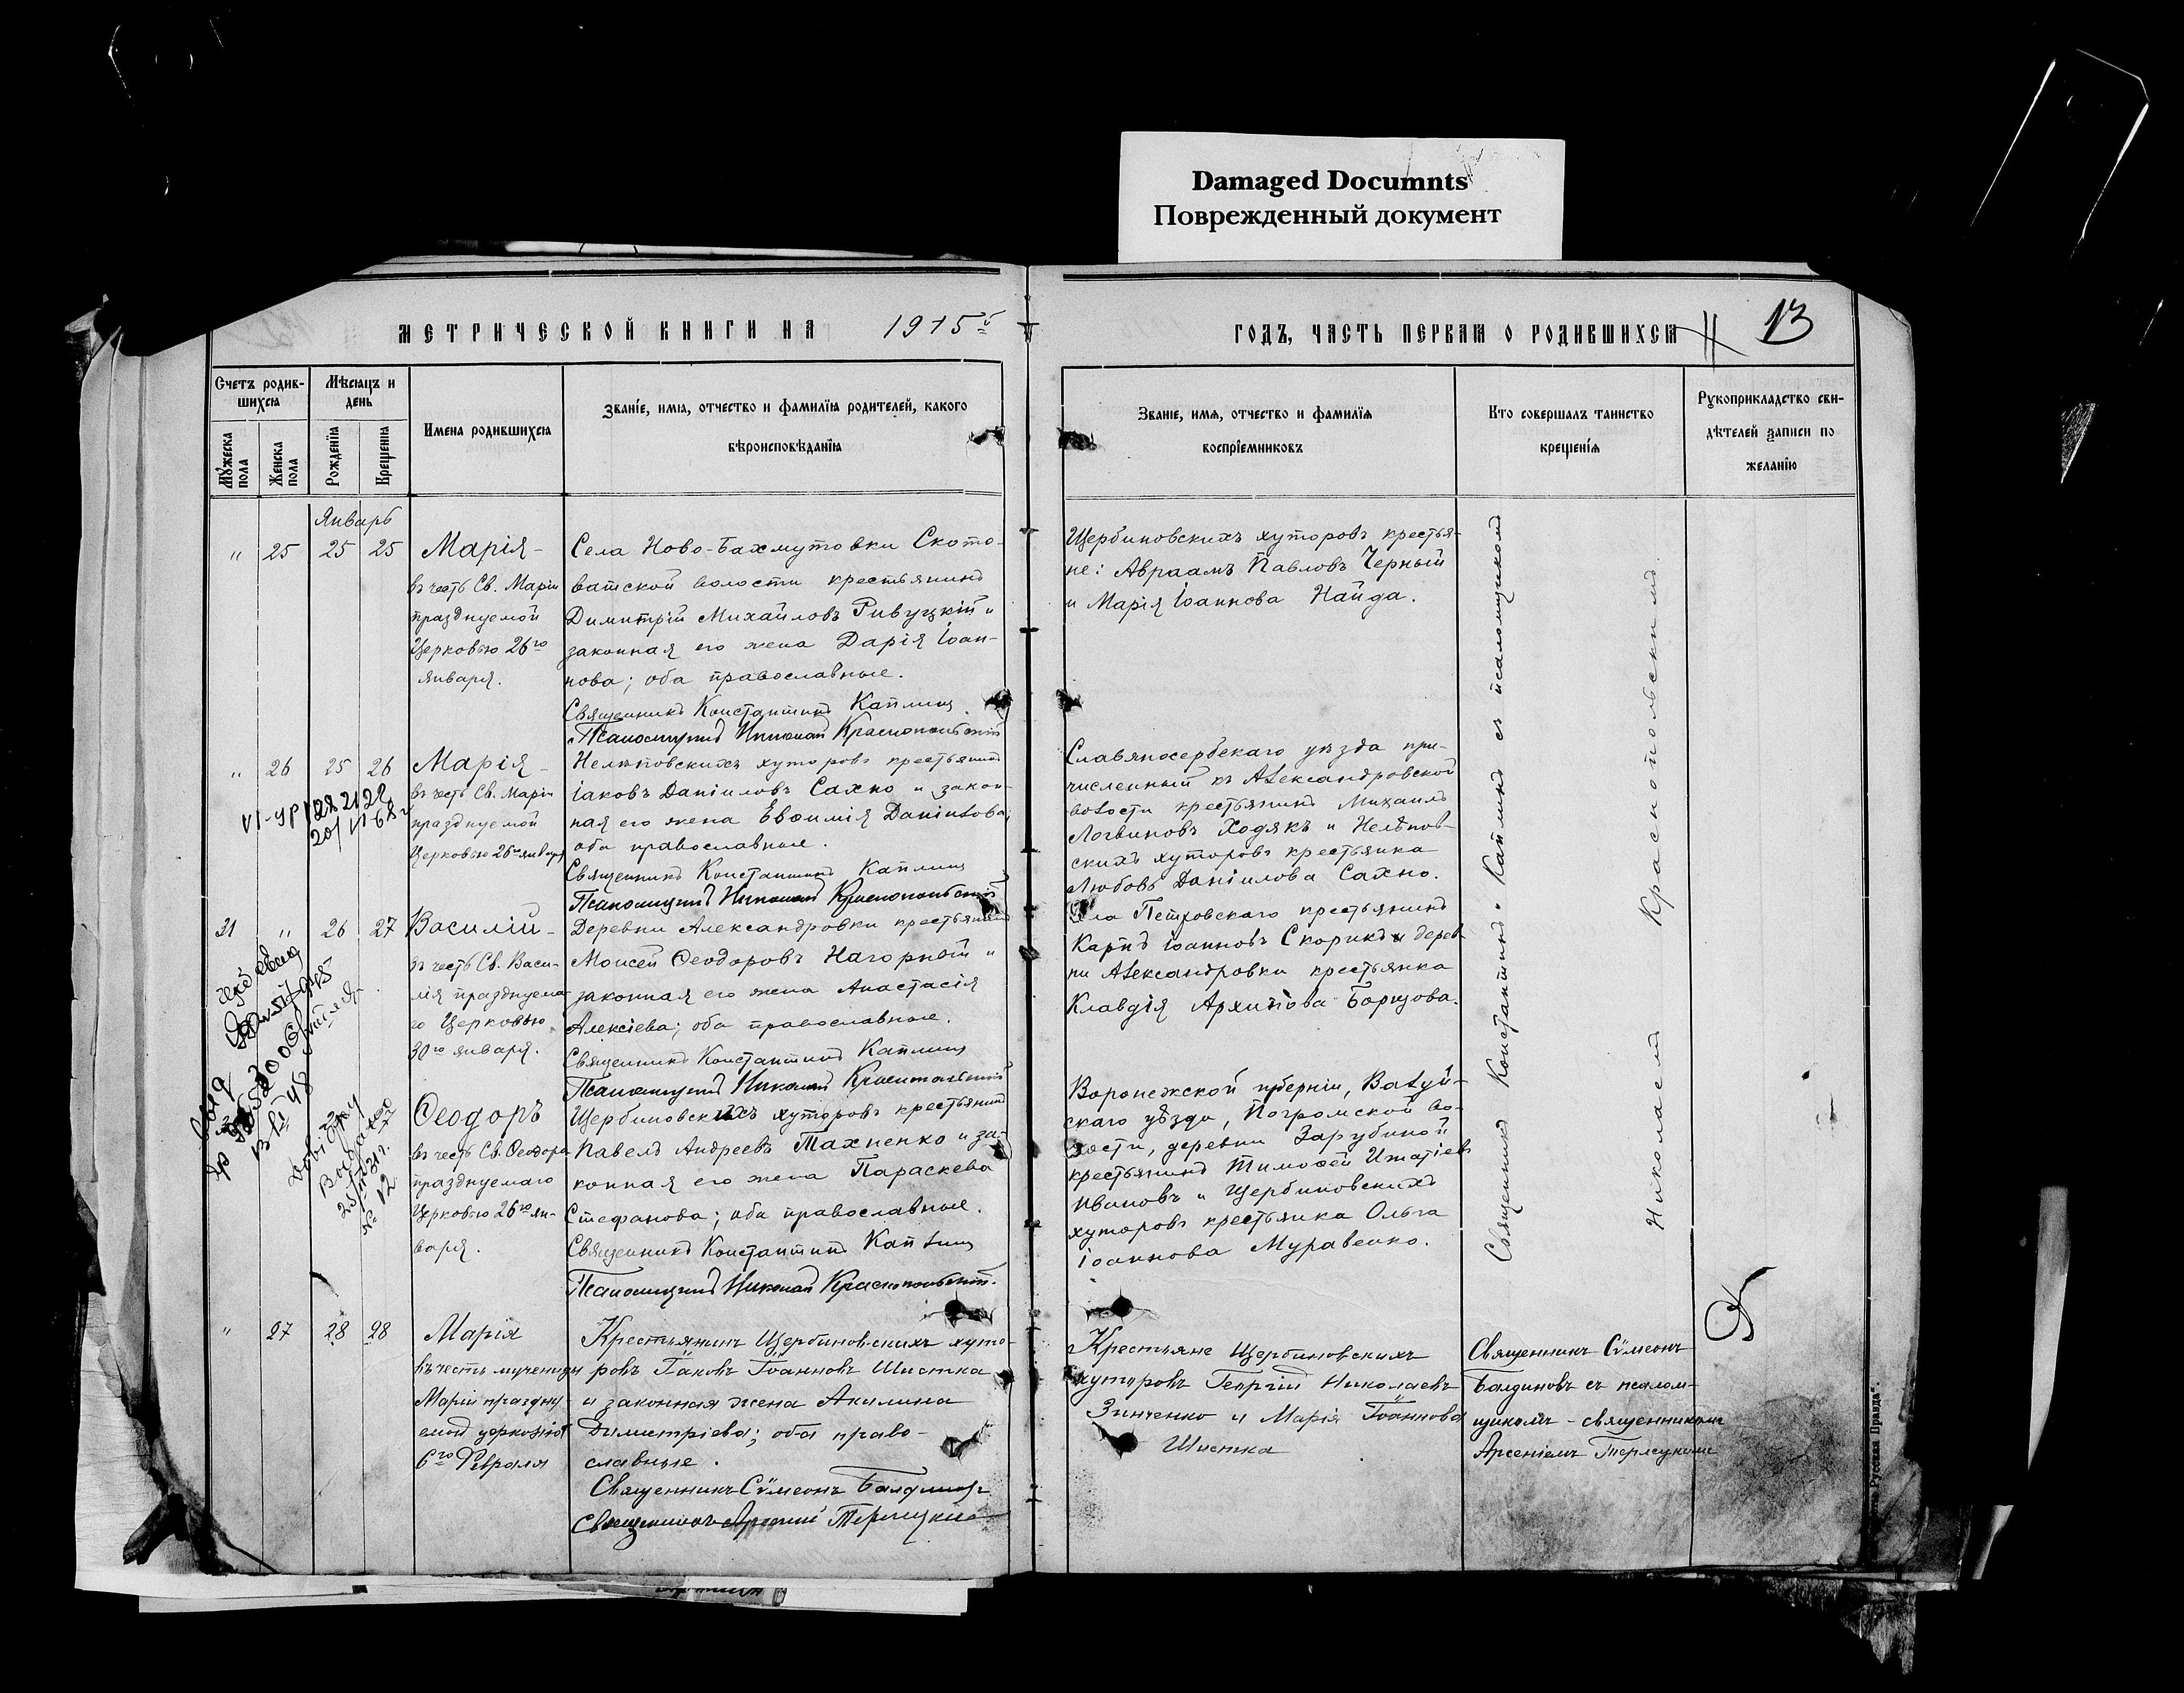 Damaged Documnts
Поврежденный документ
МЕТРИЧЕСКОЙ КНИГИ НА 1915
ГОДЪ, ЧАСТЬ ПЕРВАЯ О РОДИВШИХСЯ
13
Счетъ родив-
шихся
Мѣсяцъ и
день
Мужеска пола
Женска пола
Рожденія
Крещенія
Имена родившихся
Званіе, имя, отчество и фамилія родителей, какого
вѣроисповѣданія
Званіе, имя, отчество и фамилія
воспріемниковъ
Кто совершалъ таинство
крещенія
Рукоприкладство сви-
дѣтелей записи по
желанію
Январь
" 25 25 25
Марія -
въ честь Св. Маріи
празднуемой
Церковью 26го
января.
Села Ново-Бахмутовки Ското-
ватской волости крестьянинъ
Димитрій Михайловъ Ривуцкій и
законная его жена Дарія Іоан-
нова; оба православные.
Священникъ Константинъ Каплинъ
Псаломщикъ Николай Краснопольскій
Щербиновскихъ хуторовъ крестья-
не: Авраамъ Павловъ Черный
и Марія Іоаннова Найда.
" 26 25 26
Марія -
въ честь Св. Маріи
празднуемой
Церковью 26го января
Нелѣповскихъ хуторовъ крестьянинъ
Іаковъ Даніиловъ Сахно и закон-
ная его жена Евѳимія Даніилова;
оба православные.
Священникъ Константинъ Каплинъ
Псаломщикъ Николай Краснопольскій
Славяносербскаго уѣзда при-
численный къ Александровской
волости крестьянинъ Михаилъ
Логвиновъ Ходякъ и Нелѣпов-
скихъ хуторовъ крестьянка
Любовь Даніилова Сахно.
21 " 26 27
Василій -
въ честь Св. Васи-
лія празднуема-
го Церковью
30го января.
Деревни Александровки крестьянинъ
Моисей Ѳеодоровъ Нагорный и
законная его жена Анастасія
Алексіева; оба православные.
Священникъ Константинъ Каплинъ
Псаломщикъ Николай Краснопольскій
Села Петровскаго крестьянинъ
Карпъ Іоанновъ Скорикъ и дерев-
ни Александровки крестьянка
Клавдія Архипова Борцова.
27
Ѳеодоръ
въ честь Св. Ѳеодора
празднуемаго
Церковью 26го ян-
варя.
Щербиновскихъ хуторовъ крестьянинъ
Павелъ Андреевъ Тахненко и за-
конная его жена Параскева
Стефанова; оба православные.
Священникъ Константинъ Каплинъ
Псаломщикъ Николай Краснопольскій.
Воронежской губерніи, Валуй-
скаго уѣзда, Погромской во-
лости, деревни Зарубиной
крестьянинъ Тимоѳей Игнатіевъ
Ивановъ и Щербиновскихъ
хуторовъ крестьянка Ольга
Іоаннова Муравенко.
Священникъ Константинъ Каплинъ съ псаломщикомъ
Николаемъ Краснопольскимъ
" 27 28 28
Марія
въ честь мученицы
Маріи праздну-
емой церковію
6го Февраля
Крестьянинъ Щербиновскихъ хуто-
ровъ Іаковъ Іоанновъ Шистка
и законная жена Акилина
Димитріева; оба право-
славные.
Священникъ Сѵмеонъ Балдиновъ
Священникъ Арсеній Терлецкій
Крестьяне Щербиновскихъ
хуторовъ Георгій Николаевъ
Зинченко и Марія Іоаннова
Шистка
Священникъ Сѵмеонъ
Балдиновъ съ псалом-
щикомъ - священникомъ
Арсеніемъ Терлецкимъ
Русская Правда".